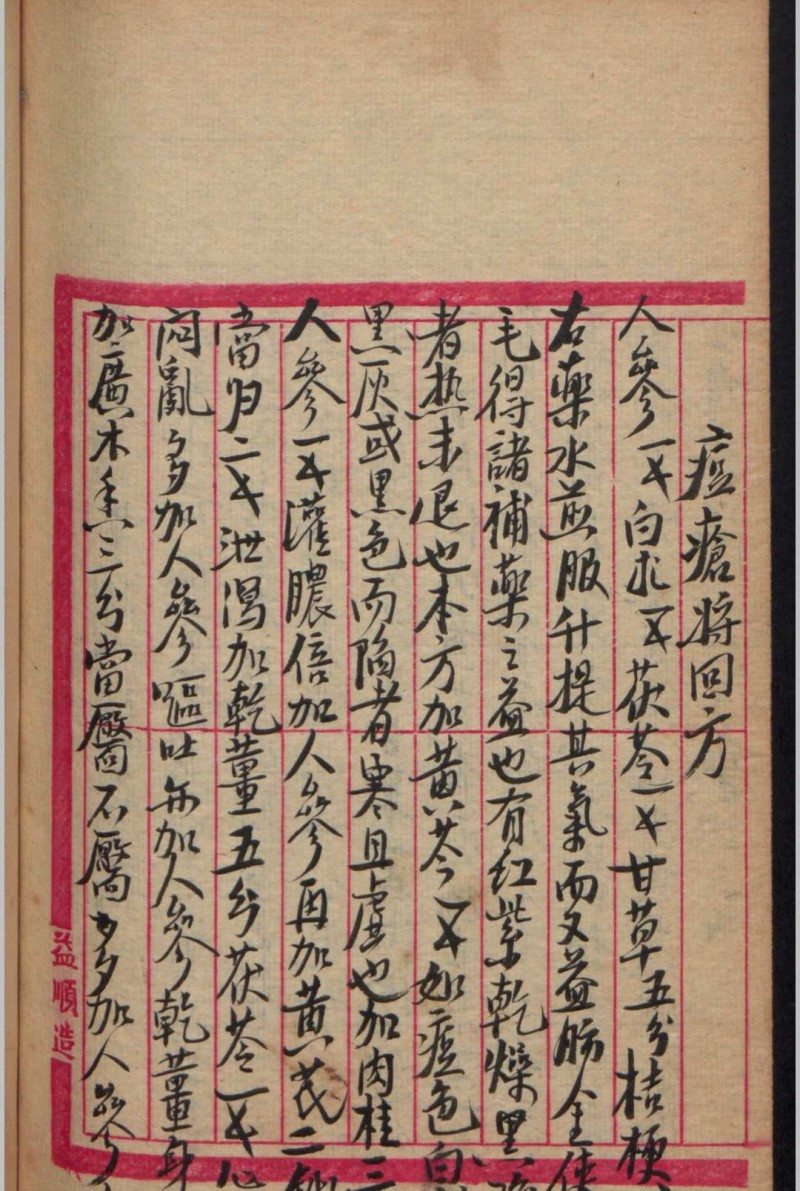 痘瘡將回方
人參一才白朮一才茯苓一才甘草五分桔梗
右藥水煎服升提其氣而又益肺金使
毛得諸補藥之益也有红紫乾燥黑陷
者热未退也本方加黄芩一才如痘色白
黑灰或黑色而陷者寒且虛也加肉桂三
人參一才灌膿倍加人參再加黄芪二錢
當归二才泄瀉加乾薑五分茯苓一才心
闷亂多加人參嘔吐亦加人參乾薑身
加廣木香三分當靨不靨多加人參
益順造